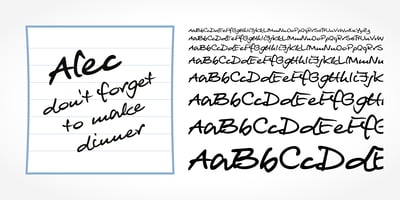 Alec
don't forget
to make
dinner
AaBbCcDdEeFfGgHhIiJjKkLlMmNnOoPpQqRrSsTtUuVvWwXxYyZz
AaBbCcDdEeFfGgHhIiJjKkLlMmNnOoPpQqRrSsTtUuVv
AaBbCcDdEeFfGgHhIiJjKkLlMmNnOoPpQqRrS
AaBbCcDdEeFfGgHhIiJjKkLlMmNnOo
AaBbCcDdEeFfGgHhIiJjKkLlMm
AaBbCcDdEeFfGgHhIiJjKk
AaBbCcDdEeFfGgHhI
AaBbCcDdEeFfG
AaBbCcDdE